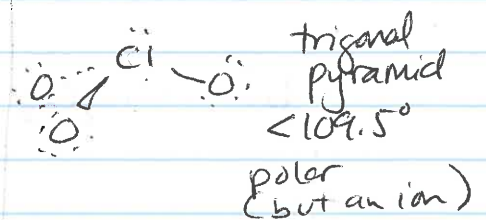 Cl
O
O
O
trigonal
pyramid
<109.5°
polar
(but an ion)